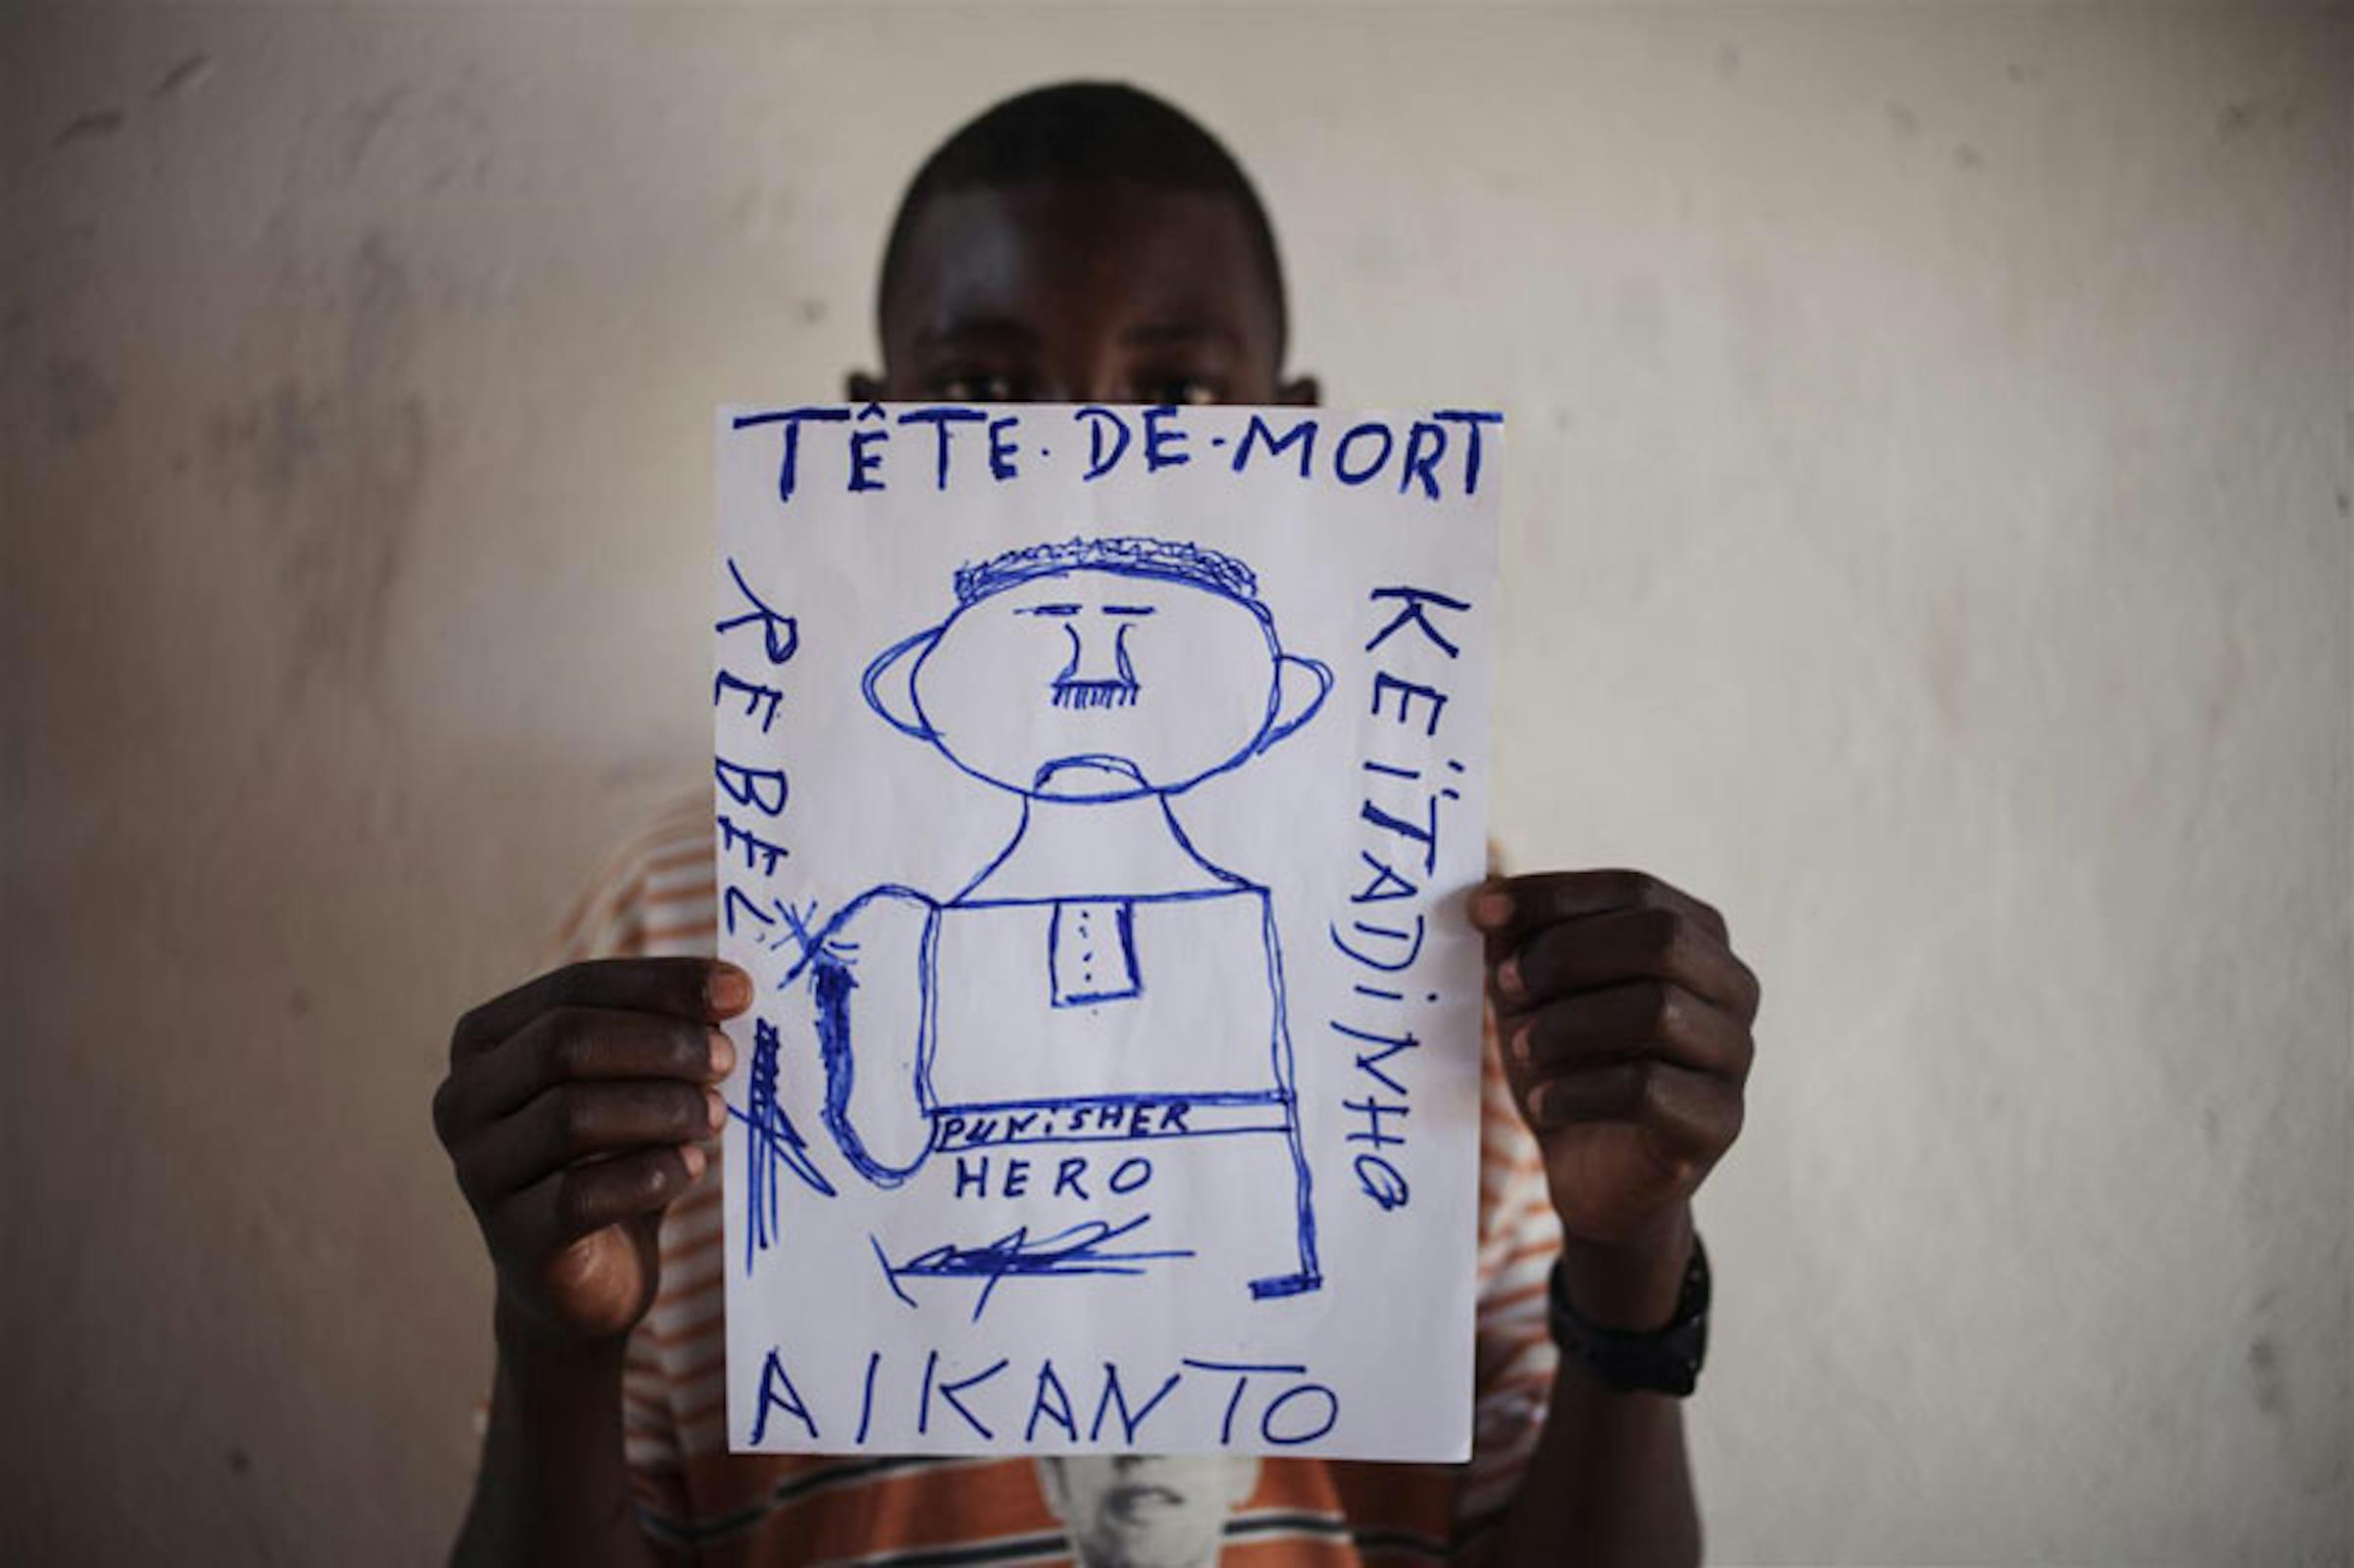 TÊTE·DE·MORT
REBEL
KEÏTADiNHO
PUNiSHER
HERO
AIKANTO